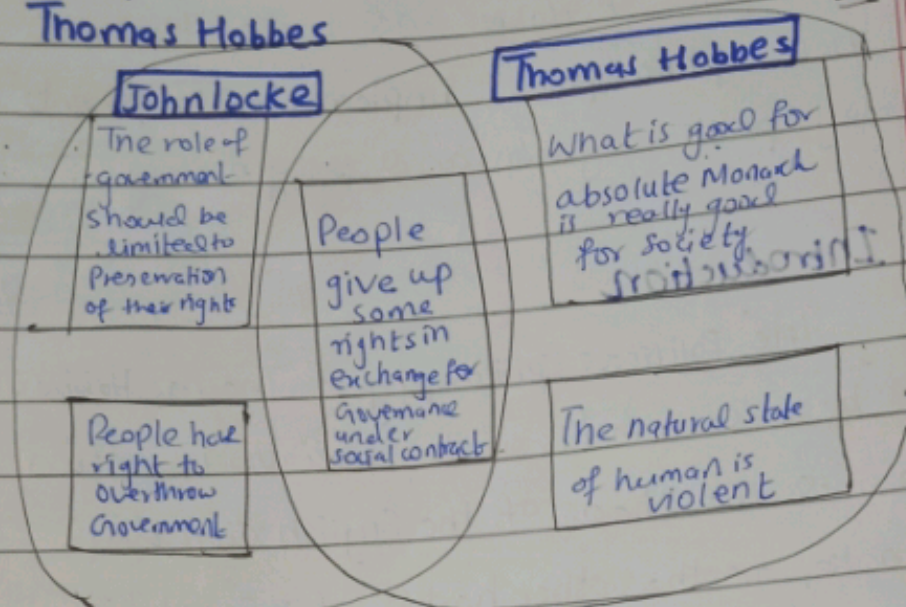 Thomas Hobbes
John locke
The role of
government
should be
limited to
Preservation
of their rights
People have
right to
overthrow
Government
People
give up
some
rights in
exchange for
Governance
under
social contract
Thomas Hobbes
What is good for
absolute Monarch
is really good
for society
The natural state
of human is
violent